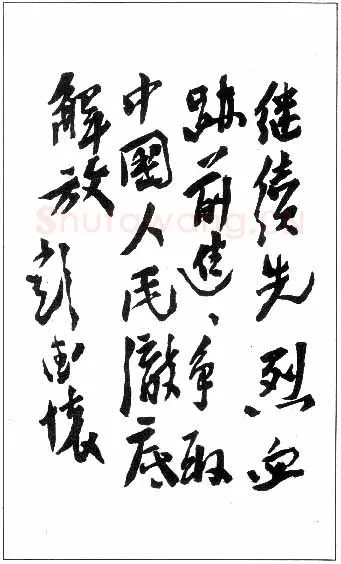 继续先烈血
跡前進、争取
中國人民徹底
解放 彭德懷
Shufawang.cn